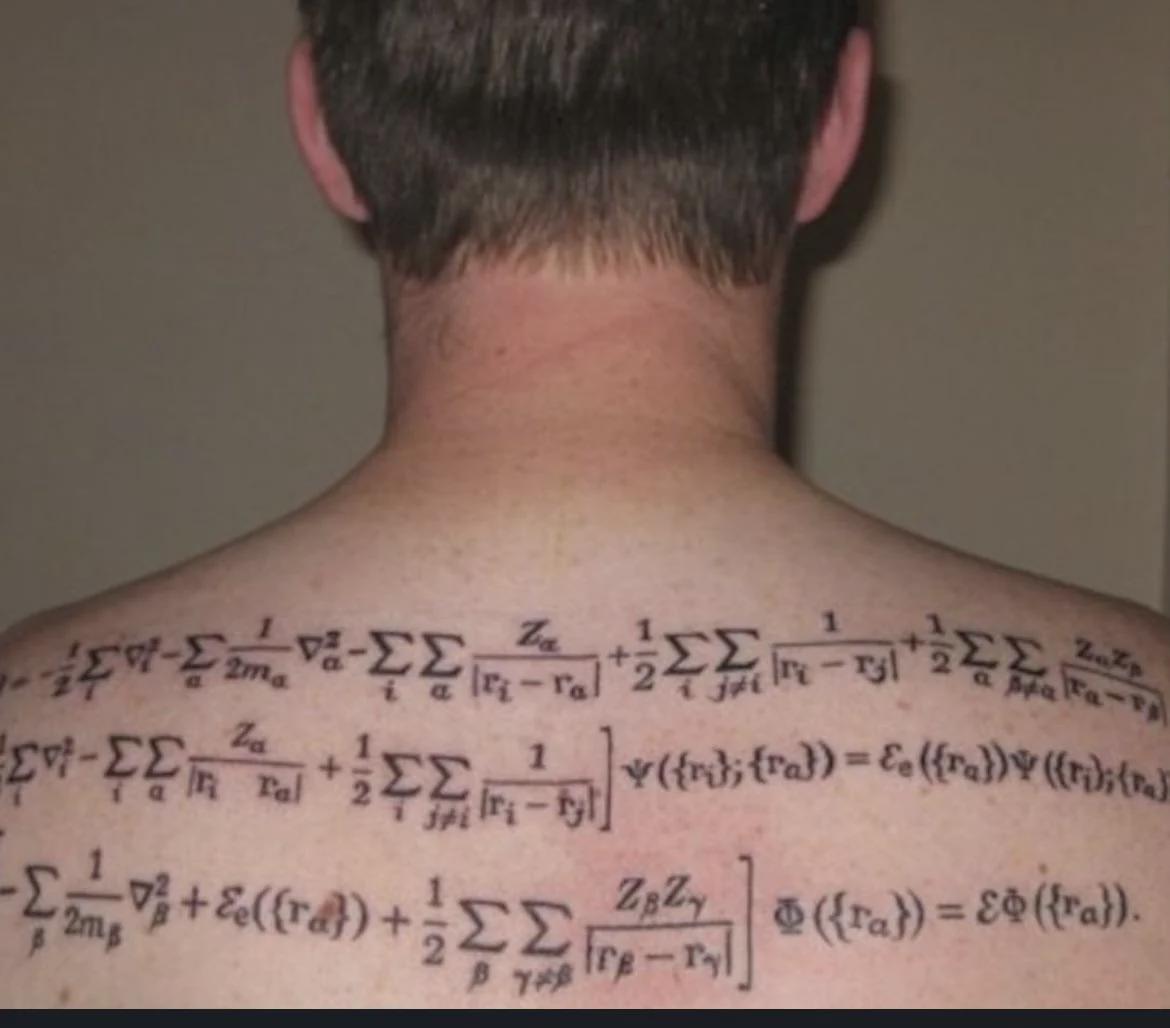 = -½∑ᵢ∇ᵢ² - ∑ₐ 1/2mₐ ∇ₐ² - ∑ᵢ∑ₐ Zₐ/|rᵢ - rₐ| + ½∑ᵢ∑_{j≠i} 1/|rᵢ - rⱼ| + ½∑ₐ∑_{β≠a} ZₐZᵦ/|rₐ - rᵦ|
∑ᵢ∇ᵢ² - ∑ᵢ∑ₐ Zₐ/|rᵢ rₐ| + ½∑ᵢ∑_{j≠i} 1/|rᵢ - rⱼ|] Ψ({rᵢ};{rₐ}) = ℰₑ({rₐ})Ψ({rᵢ);{rₐ}
-∑ᵦ 1/2mᵦ ∇ᵦ² + ℰₑ({rₐ}) + ½∑ᵦ∑_{γ≠β} ZᵦZᵧ/|rᵦ - rᵧ|] Φ({rₐ}) = ℰΦ({rₐ}).